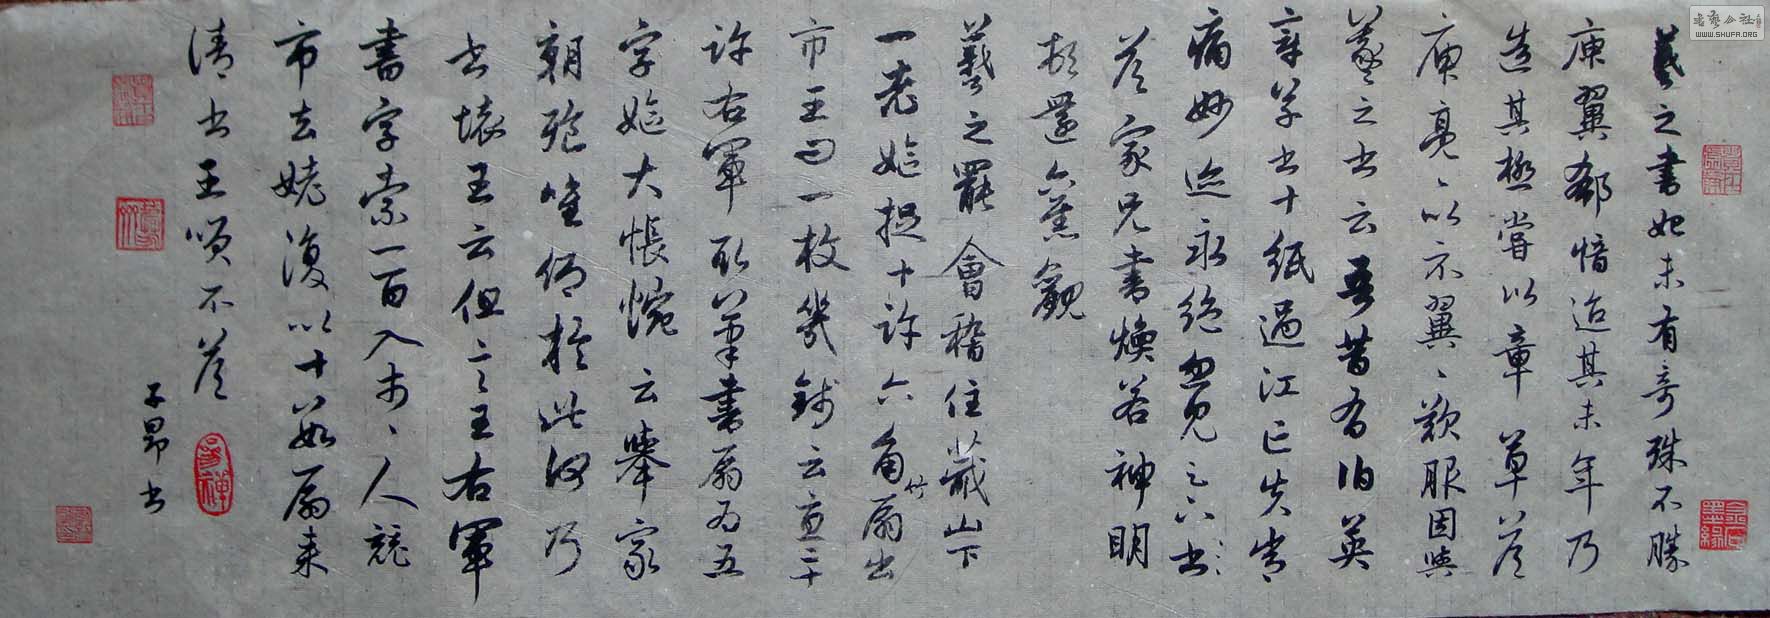 羲之書始未有奇殊不勝
庾翼郗愔迨其末年乃
造其極嘗以章草答
庾亮、以示翼、歎服因與
羲之書云吾昔有伯英
章草書十紙過江亡失常
痛妙迹永絕忽見足下書
答家兄書煥若神明
頓還舊觀
羲之罷會稽住蕺山下
一老嫗捉十許六角竹扇出
市王曰一枚幾錢云直二十
許右軍取筆書扇為五
字嫗大悵惋云舉家
朝飡唯仰於此何乃
書壞王云但言王右軍
書字索一百入市、人競
市去姥復以十數扇來
請書王笑不答
子昂書
WWW.SHUFA.ORG